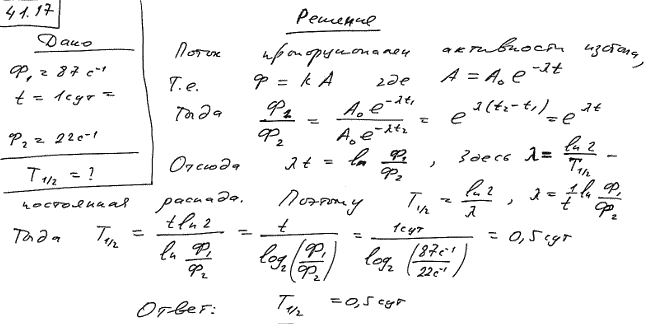 41.17
Дано
Φ₁ = 87 с⁻¹
t = 1сут =
Φ₂ = 22с⁻¹
T₁/₂ = ?
Решение
Поток пропорционален активности изотопа,
Т.е. Φ = kA где A = A₀e^(-λt)
Тогда Φ₁/Φ₂ = A₀e^(-λt₁)/A₀e^(-λt₂) = e^(λ(t₂-t₁)) = e^(λt)
Отсюда λt = ln Φ₁/Φ₂, здесь λ = ln2/T₁/₂ -
постоянная распада. Поэтому T₁/₂ = ln2/λ, λ = 1/t ln Φ₁/Φ₂
Тогда T₁/₂ = t ln2/ln Φ₁/Φ₂ = t/log₂(Φ₁/Φ₂) = 1сут/log₂(87с⁻¹/22с⁻¹) = 0,5 сут
Ответ: T₁/₂ = 0,5 сут